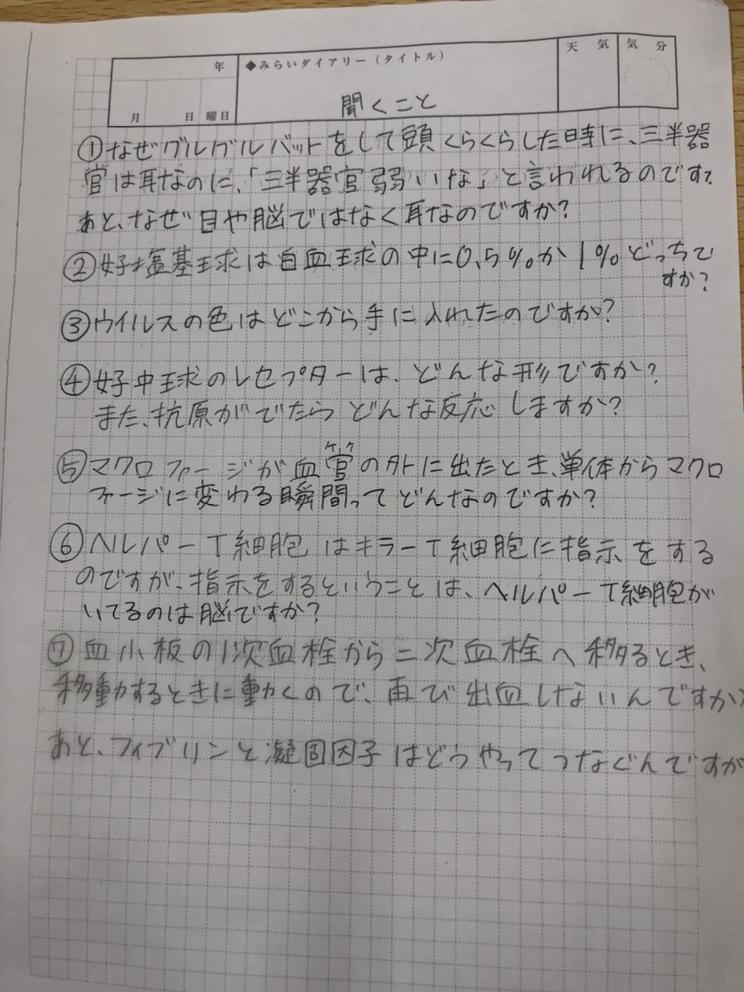 年
◆みらいダイアリー（タイトル）
天気
気分
月 日 曜日
聞くこと
①なぜグルグルバットをして頭くらくらした時に、三半器
官は耳なのに、「三半器官弱いな」と言われるのです?
あと、なぜ目や脳ではなく耳なのですか?
②好塩基球は白血球の中に0.5%か1%どっちで
すか?
③ウイルスの色はどこから手に入れたのですか?
④好中球のレセプターは、どんな形ですか?
また、抗原がでたらどんな反応しますか?
⑤マクロファージが血管の外に出たとき、単体からマクロ
ファージに変わる瞬間ってどんなのですか?
⑥ヘルパーT細胞はキラーT細胞に指示をする
のですが、指示をするということは、ヘルパーT細胞が
いてるのは脳ですか?
⑦血小板の1次血栓から二次血栓へ移るとき、
移動するときに動くので、再び出血しないんですか?
あと、フィブリンと凝固因子はどうやってつなぐんですが